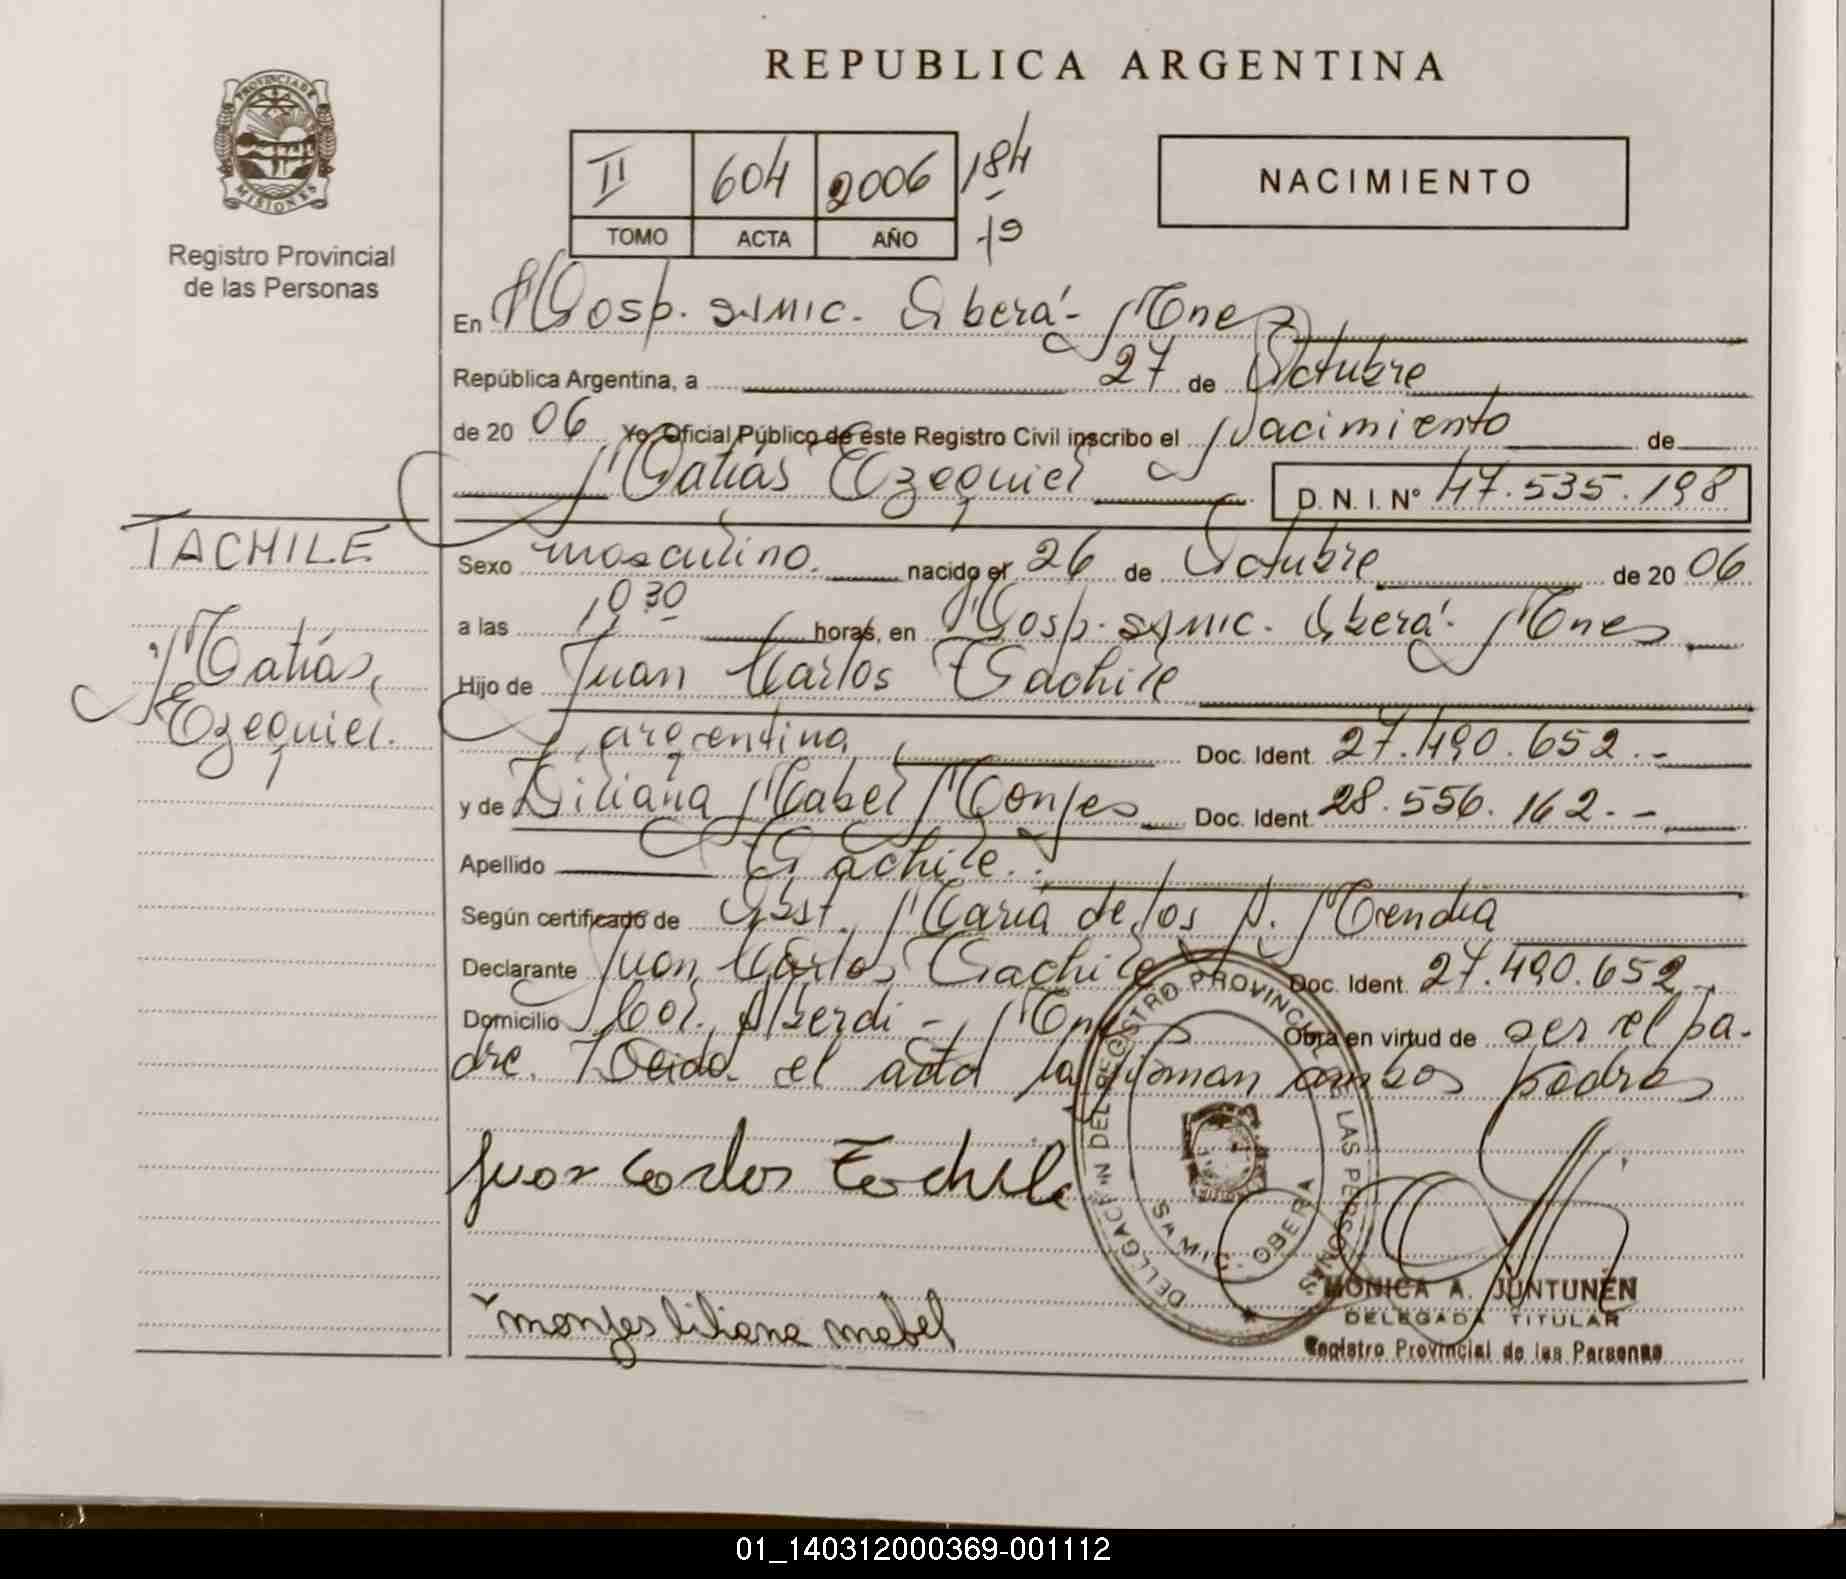 REPUBLICA ARGENTINA
PROVINCIA DE MISIONES
Registro Provincial
de las Personas
II 604 2006 184
TOMO ACTA AÑO 19
NACIMIENTO
En Hosp. SAMIC. Oberá- Mnes
República Argentina, a 27 de Octubre
de 20 06 Yo, Oficial Público de este Registro Civil inscribo el Nacimiento de
Matías Ezequiel D. N. I. Nº 47.535.198
TACHILE
Matías,
Ezequiel.
Sexo masculino. nacido el 26 de Octubre de 20 06
a las 10 30 horas, en Hosp. SAMIC. Oberá. Mnes
Hijo de Juan Carlos Tachile
argentina Doc. Ident. 27.490.652.-
y de Liliana Mabel Monjes Doc. Ident. 28.556.162.--
Apellido Tachile.
Según certificado de Obst. María de los A. Mendia
Declarante Juan Carlos Tachile Doc. Ident. 27.490.652.-
Domicilio Col. Alberdi - Mnes Obra en virtud de ser el pa-
dre. Leida el acta la firman ambos padres
Juan Carlos Tachile
monjes liliana mabel
DELEGACION DEL REGISTRO PROVINCIAL DE LAS PERSONAS
OBERA
MONICA A. JUNTUNEN
DELEGADA TITULAR
Registro Provincial de las Personas
01_140312000369-001112